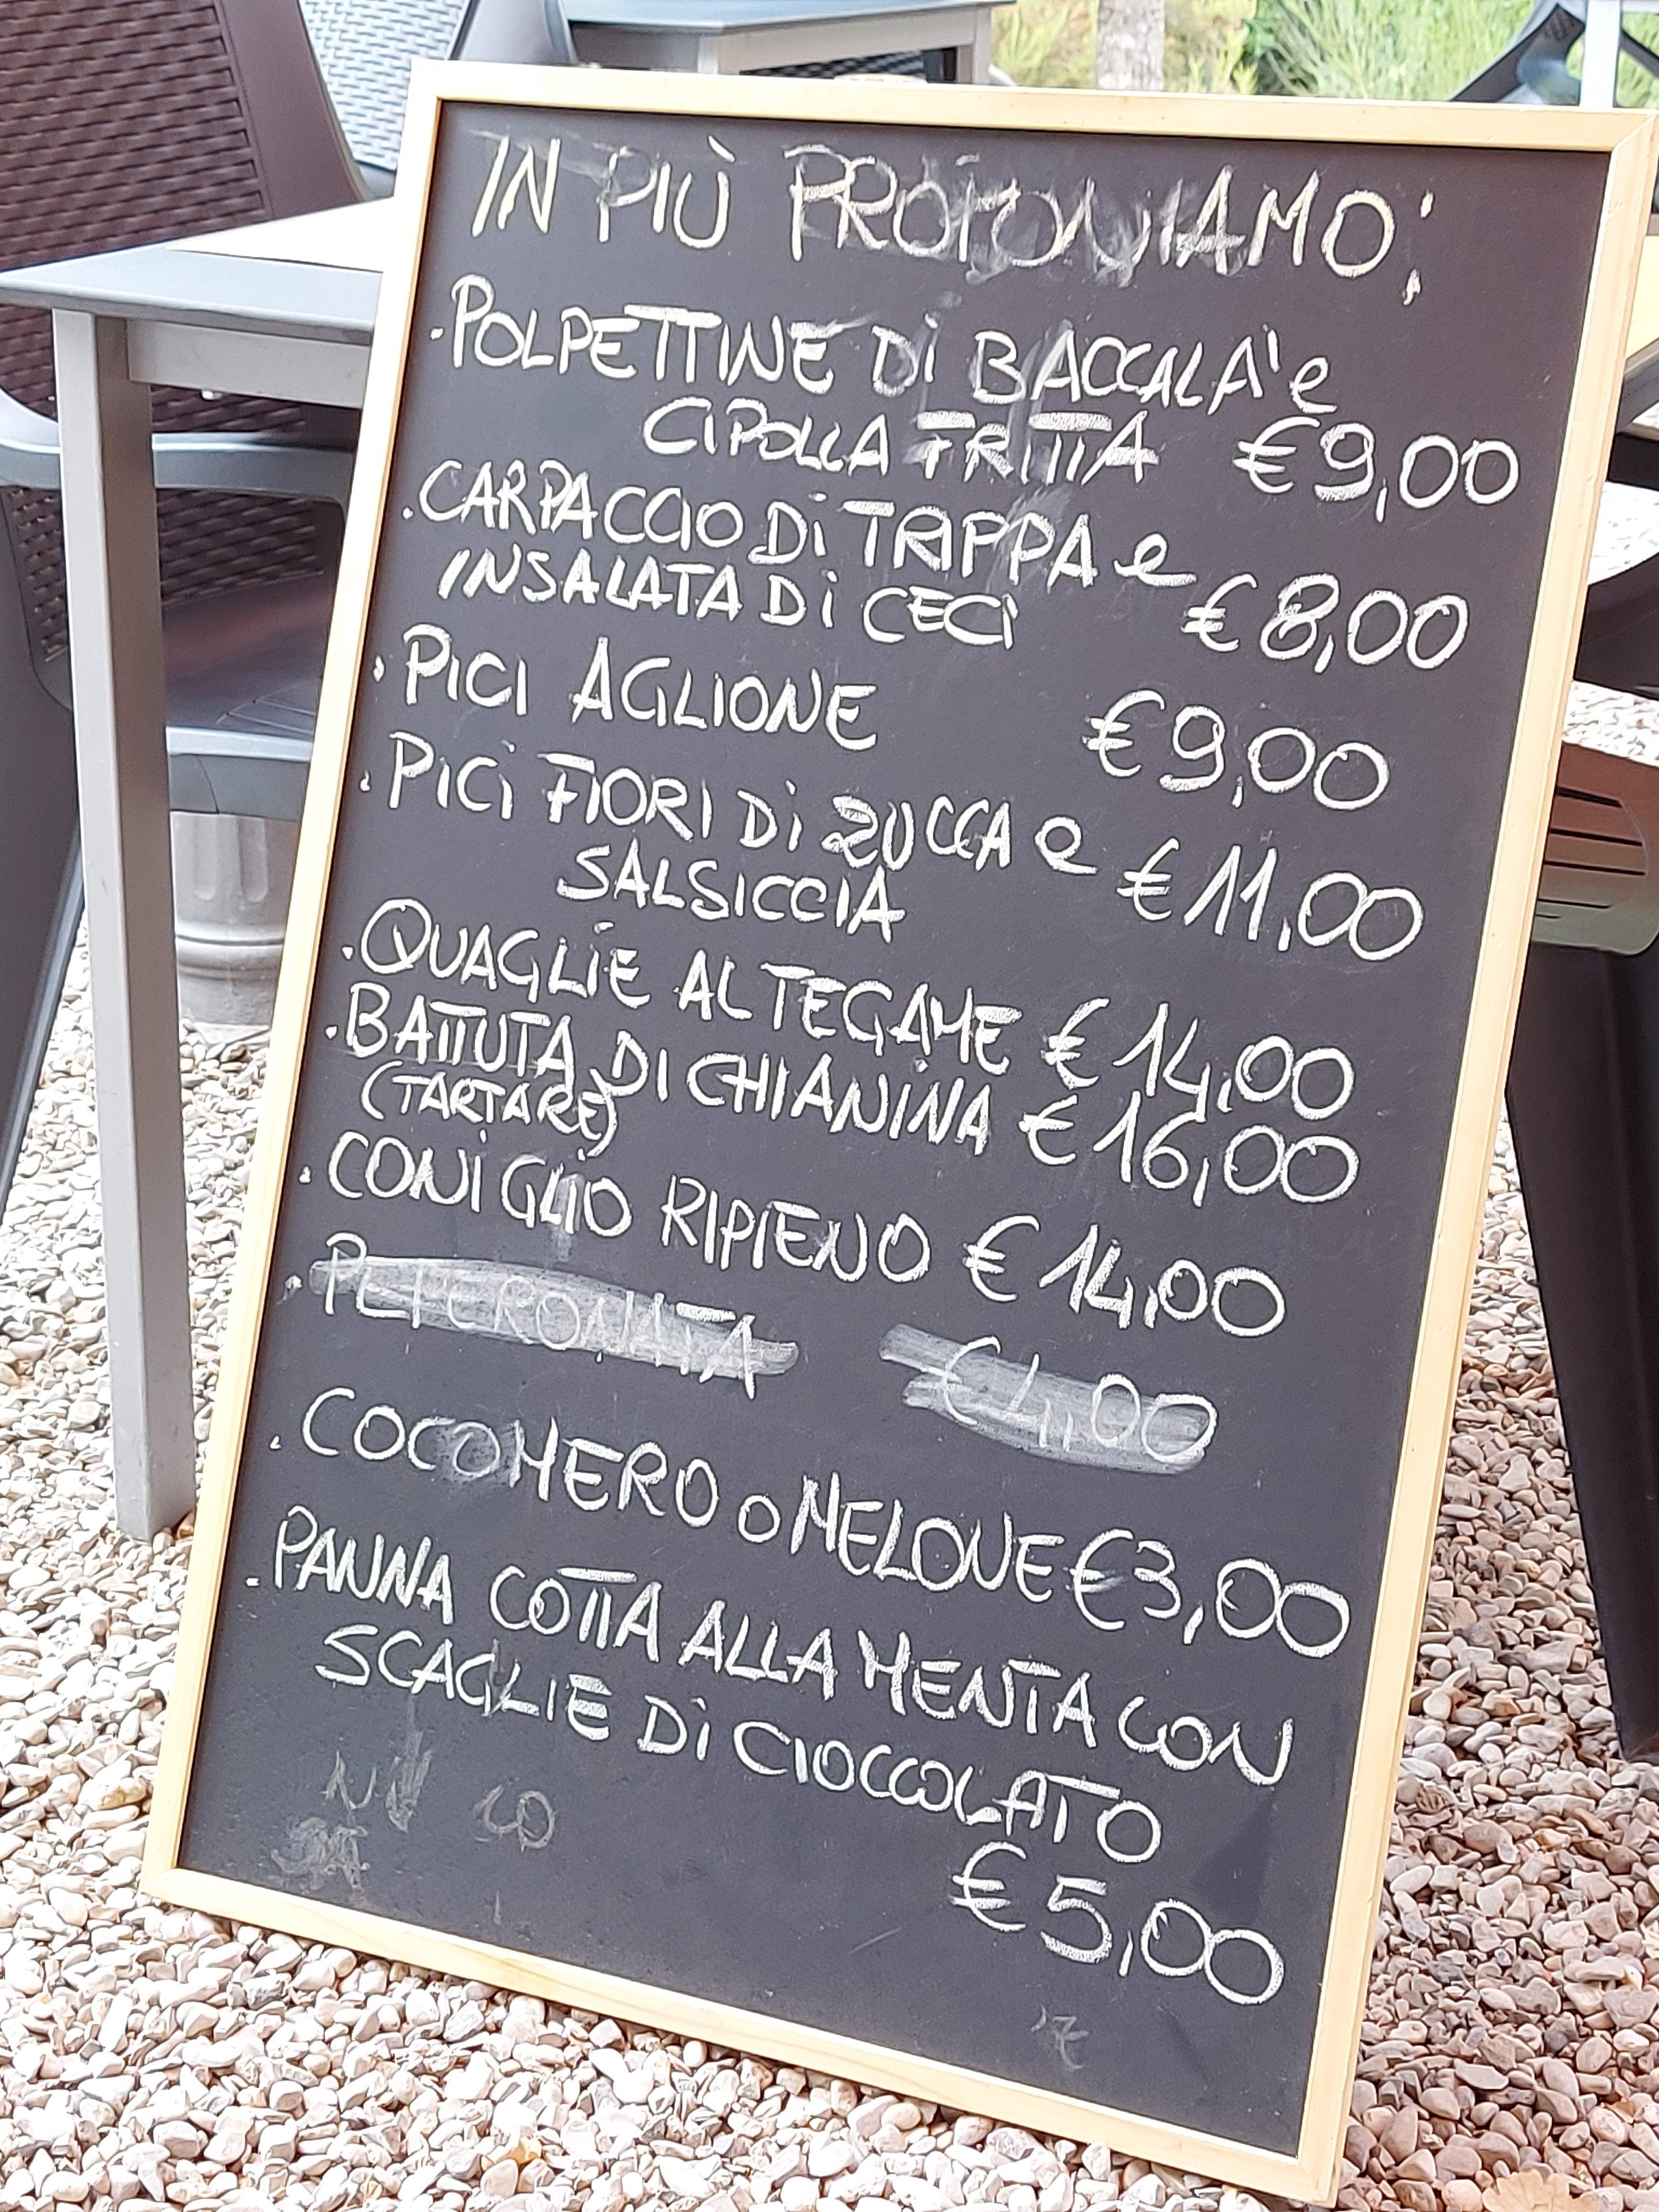 IN PIÙ PROPONIAMO:
·POLPETTINE Di BACCALA' e
CIPOLLA FRITTA €9,00
·CARPACCIO Di TRIPPA e
INSALATA Di CECI €8,00
·PICI AGLIONE €9,00
·PICI FIORI Di ZUCCA e €11,00
SALSICCIA
·QUAGLIE AL TEGAME €14,00
·BATTUTA DI CHIANINA €16,00
(TARTARE)
·CONIGLIO RIPIENO €14,00
·PEPERONATA €4,00
·COCOMERO o MELONE €3,00
·PANNA COTTA ALLA MENTA CON
SCAGLIE Di CIOCCOLATO
€5,00